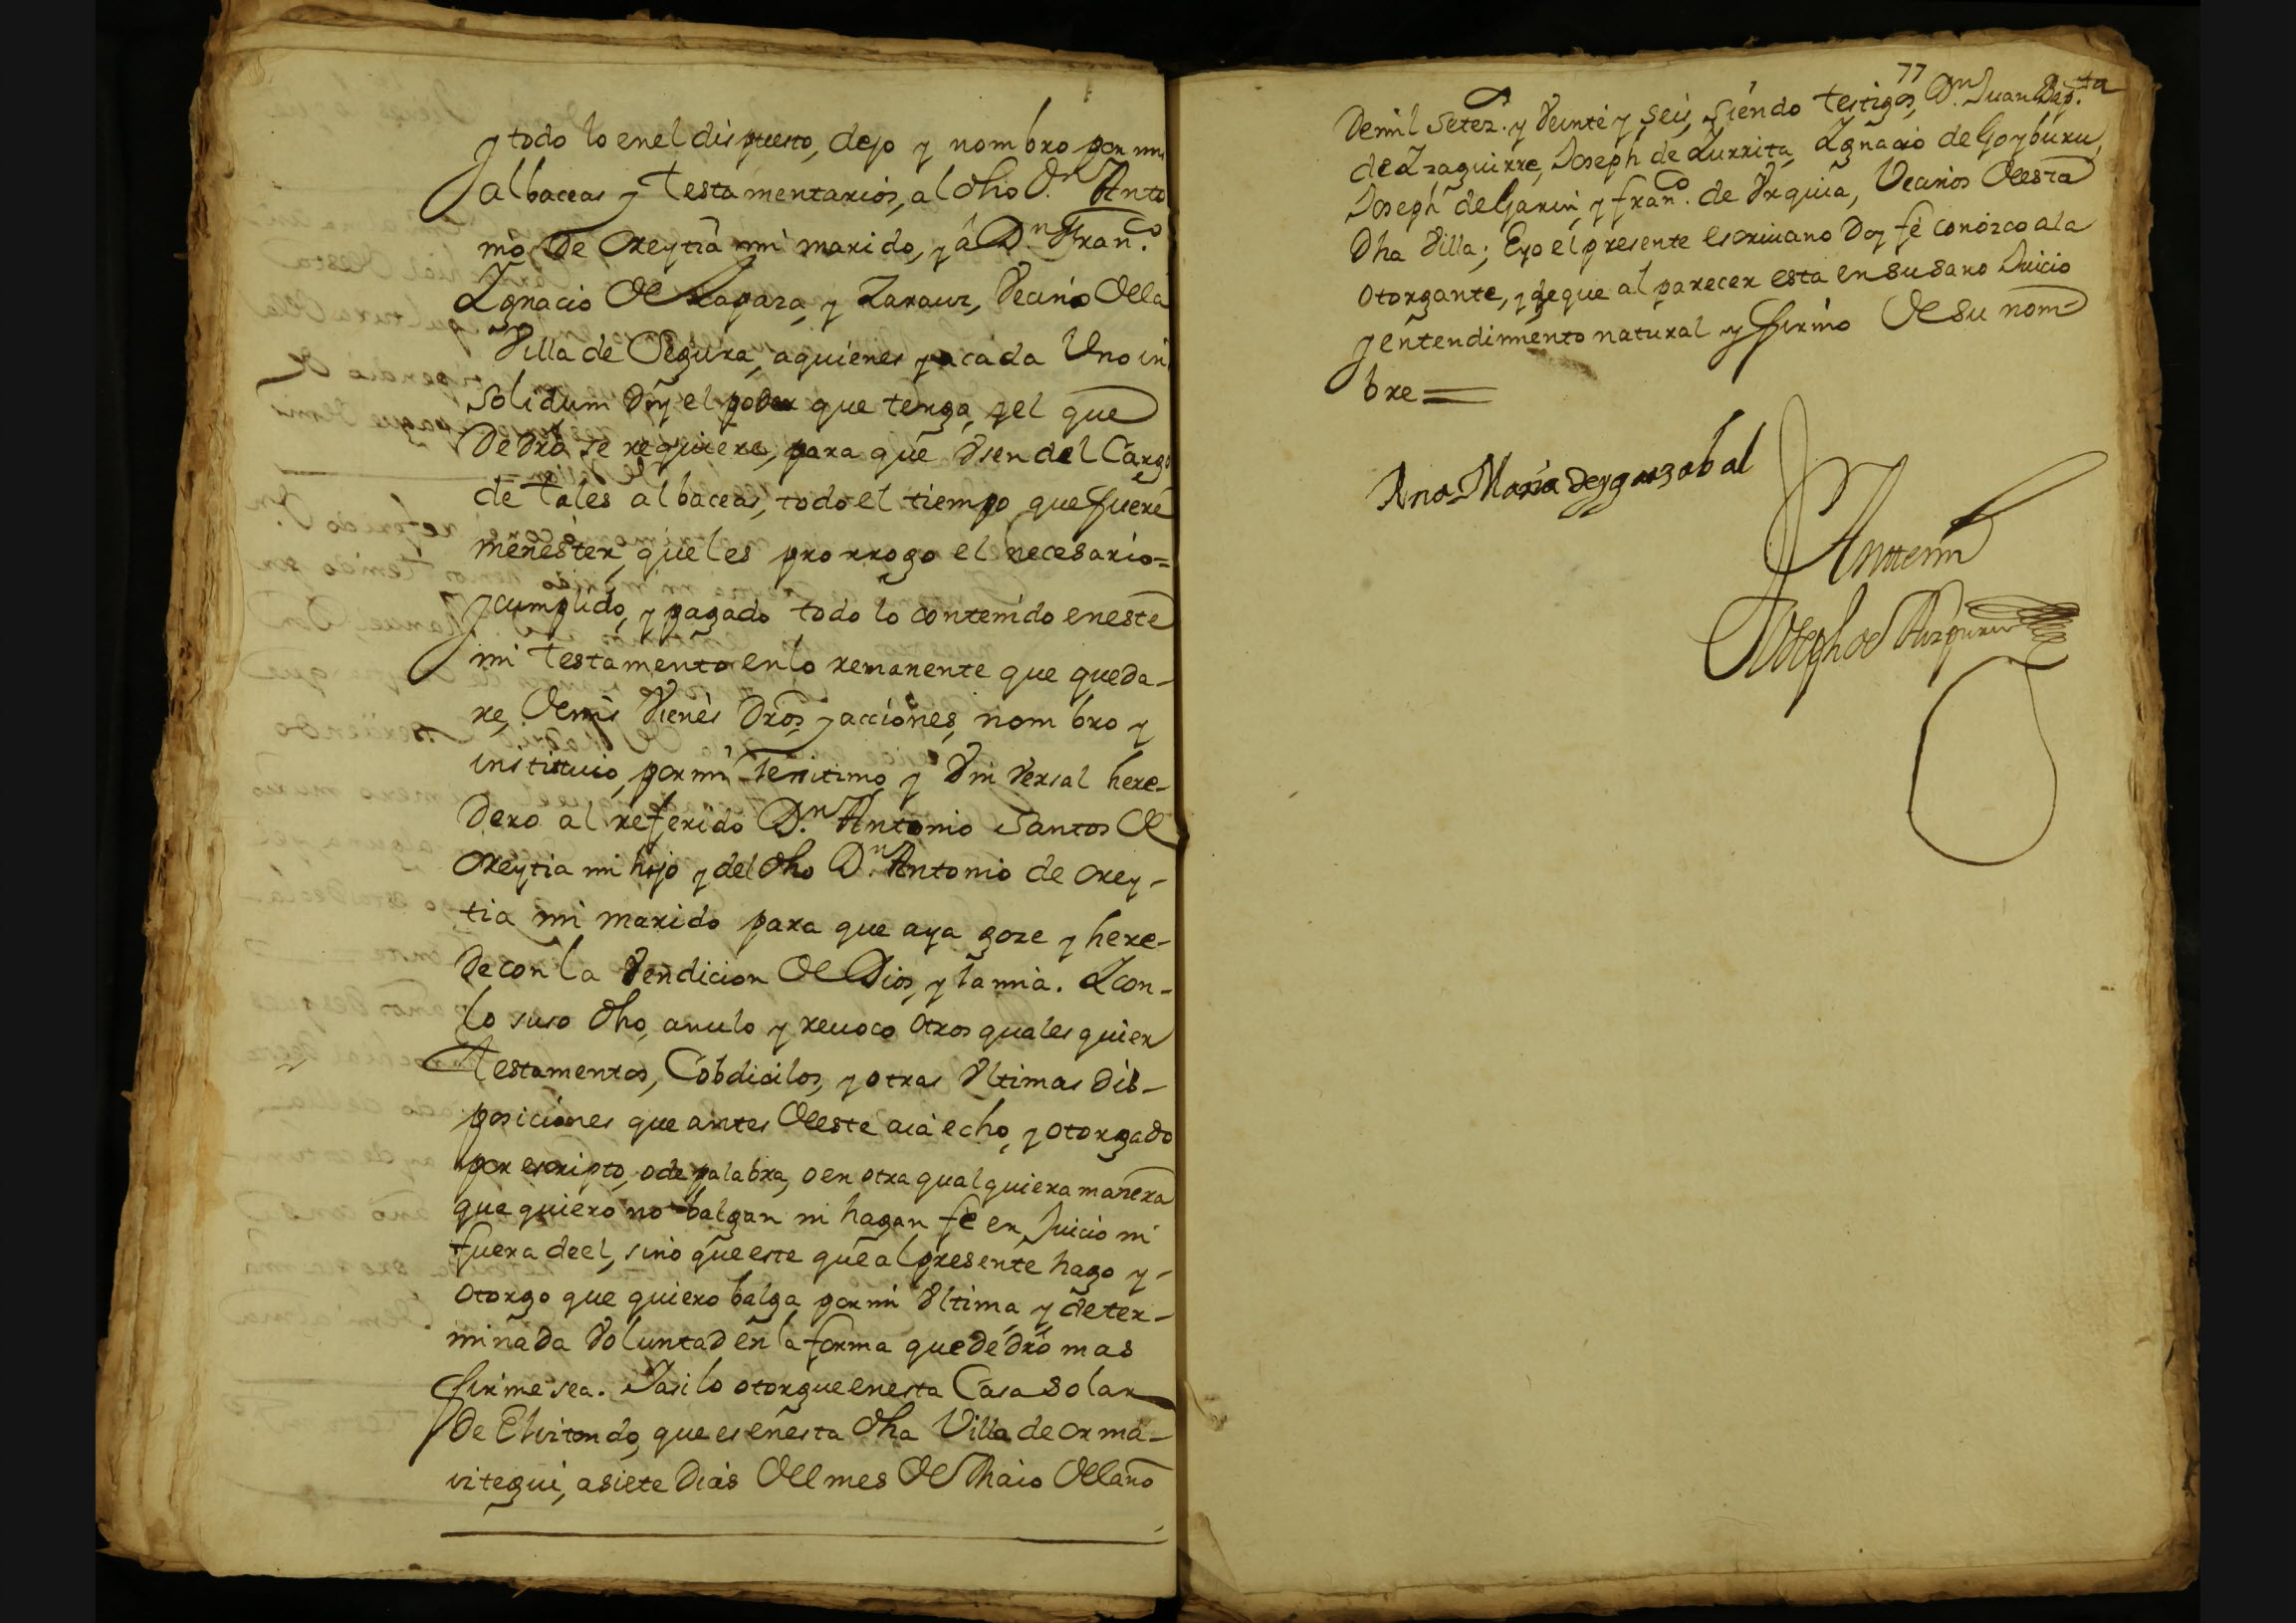 y todo lo en el dispuesto, dejo y nombro por mis
albaceas y testamentarios, al dho D.n Anto
nio de Oreytia mi marido, y á D.n Fran.co
Ygnacio de Lapaza, y Zarauz, Vecino de la
Villa de Segura, a quienes y a cada Uno in
solidum doy el poder que tenga, y el que
de dro se requiere, para que Vsen del Cargo
de tales albaceas, todo el tiempo que fuere
menester, que les prorrogo el necesario=
y cumplido, y pagado todo lo contenido en este
mi testamento en lo remanente que queda-
re, de mis Vienes dros y acciones, nombro y
instituio, por mi lexitimo, y Vniversal here-
dero al referido D.n Antonio Santos de
Oreytia mi hijo y del dho D.n Antonio de Orey-
tia mi marido para que aya goze y here-
de con la Vendicion de Dios, y la mia. Y con-
lo suso dho, anulo y reuoco otros quales quier
testamentos, Cobdicilos, y otras Vltimas dis-
posiciones que antes de este aia echo, y otorgado
por escripto, o de palabra, o en otra qualquiera manera
que quiero no balgan ni hagan fe en Juicio ni
fuera de el, sino que este que al presente hago y-
otorgo que quiero balga por mi Vltima, y deter-
minada Voluntad en la forma que de dro mas
firme sea. Y asi lo otorgue en esta Casa solar
de que es en esta dha Villa de Orma-
iztegui, a siete dias del mes de Maio del año
77
de mil setez.s y Veinte y seis, siendo testigos, D.n Juan Bap.ta
de Yzaguirre, Joseph de Zurrita, Ygnacio de Goyburu,
Joseph de Garin, y fran.co de Vrquia, Vecinos de esta
dha Villa; E yo el presente escriuano doy fe conozco a la
otorgante, y de que al parecer esta en su sano Juicio
y entendimiento natural y firmó de su nom-
bre=
Ana Maria de ygarzabal
Ante mi
Joseph de Aizpuru